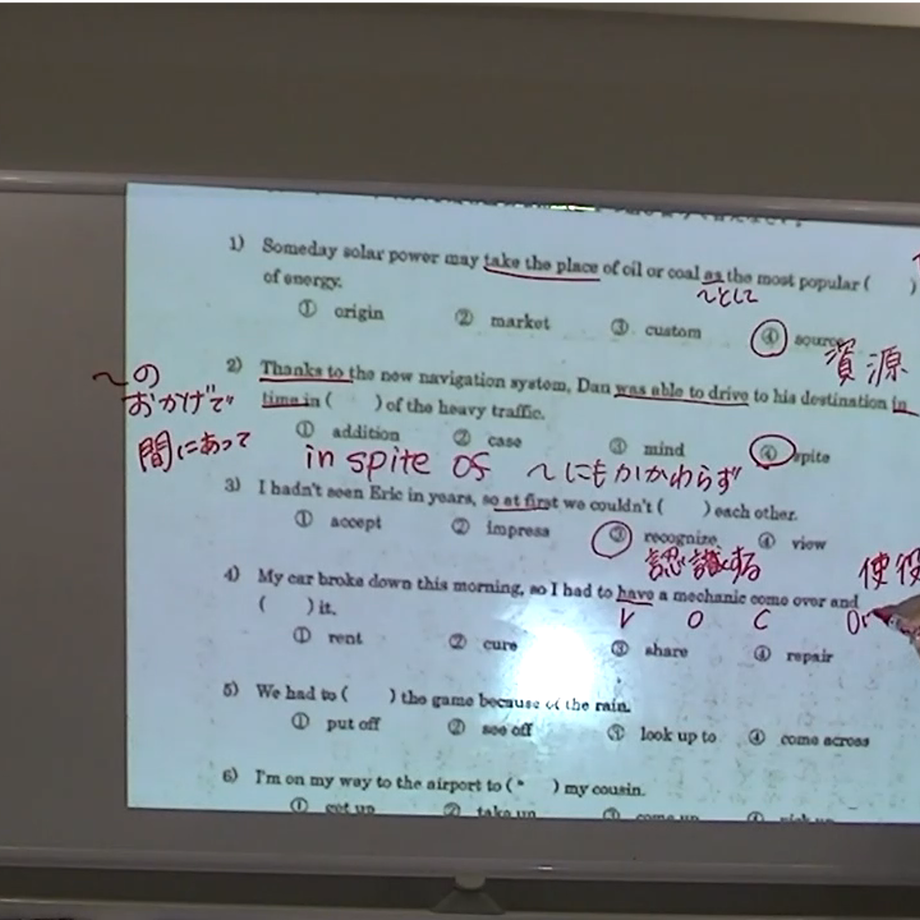 1) Someday solar power may take the place of oil or coal as the most popular ( )
of energy.
～として
① origin ② market ③ custom ④ source
資源
2) Thanks to the new navigation system, Dan was able to drive to his destination in
time in ( ) of the heavy traffic.
～の
おかげで
間にあって
① addition ② case ③ mind ④ spite
in spite of ～にもかかわらず
3) I hadn't seen Eric in years, so at first we couldn't ( ) each other.
① accept ② impress ③ recognize ④ view
認識する
使役
4) My car broke down this morning, so I had to have a mechanic come over and
( ) it.
V O C
① rent ② cure ③ share ④ repair
5) We had to ( ) the game because of the rain.
① put off ② see off ③ look up to ④ come across
6) I'm on my way to the airport to ( ) my cousin.
① get up ② take up ③ come up ④ pick up